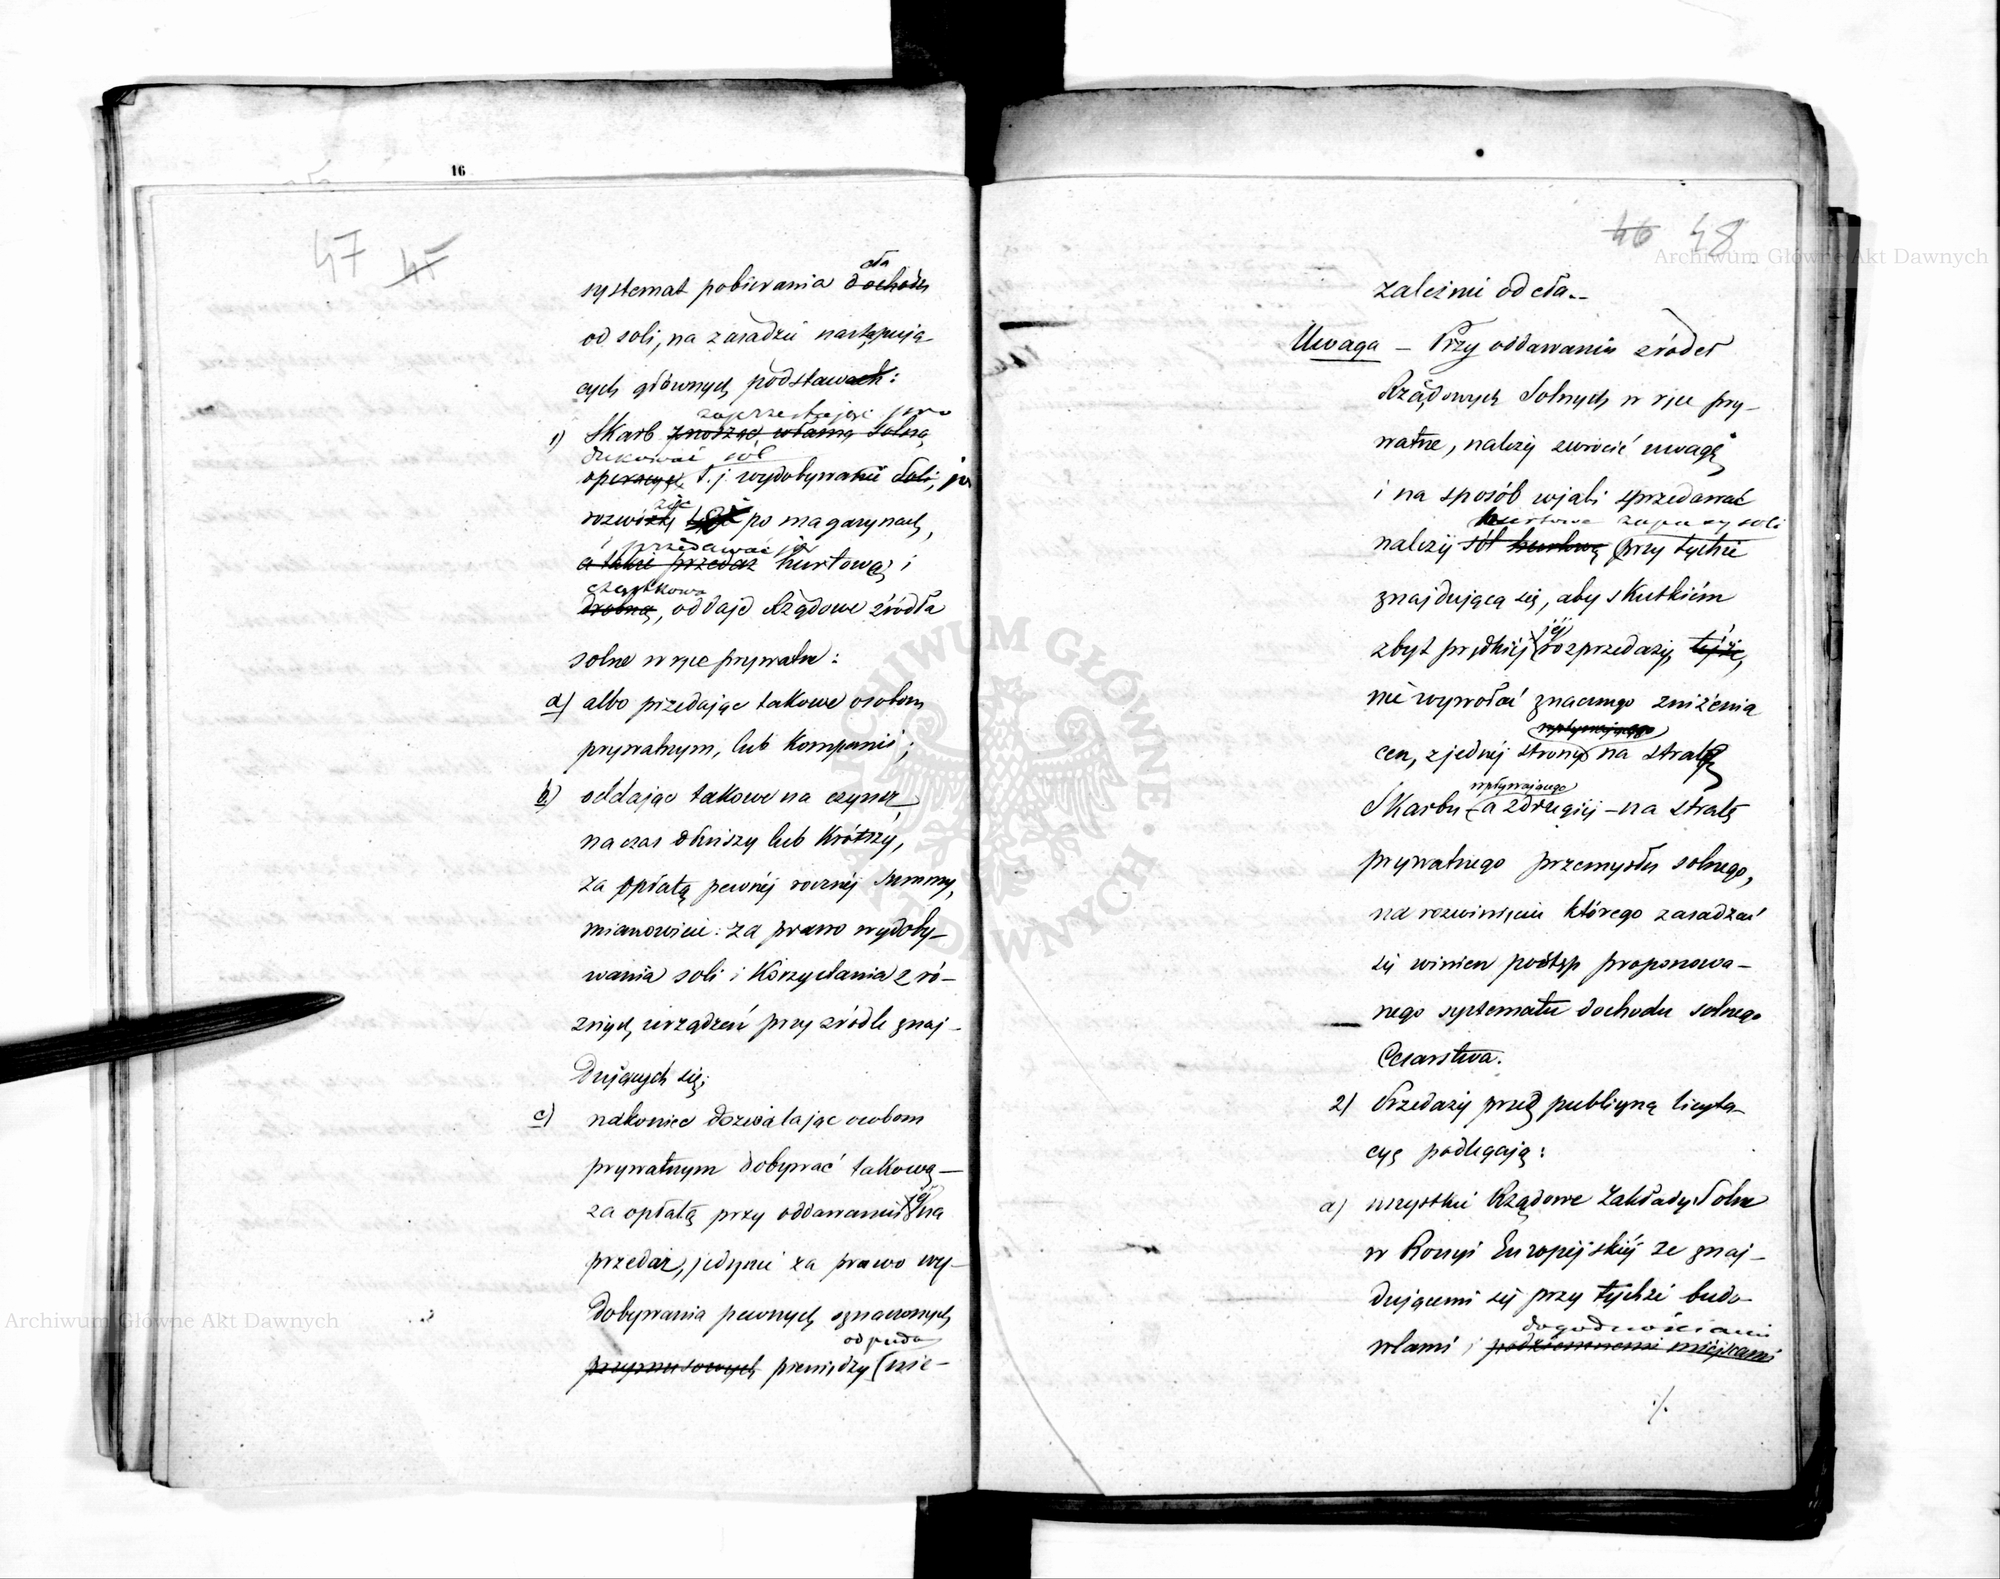 16
47 ~~45~~
cła
systemat pobierania ~~dochodu~~
od soli, na zasadzie następują
cych głównych podstawach:
zaprzestając pro
1) Skarb ~~znosząc własną Solną~~
dukować sól
~~operacyę~~ t. j. wydobywanie Soli,
rozwózkę po magazynach,
i przedawać ją
~~a także przedaż~~ hurtową i
cząstkową
~~drobną~~, oddaje Rządowe źródła
solne w ręce prywatne:
a) albo przedając takowe osobom
prywatnym, lub Kompanii;
b) oddając takowe na czynsz,
na czas dłuższy lub Krótszy,
za opłatą pewnéj rocznéj Summy,
mianowicie: za prawo wydoby-
wania soli i Korzystania z ró-
żnych urządzeń przy źródle znaj-
dujących się;
c) nakoniec dozwalając osobom
prywatnym dobywać takową —
jéj
za opłatą przy oddawaniu na
przedaż, jedynie za prawo wy-
dobywania pewnych oznaczonych
od puda
~~przymusowych~~ pieniędzy (nie-
~~46~~ 48
zależnie od cła.-
Uwaga - Przy oddawaniu źródeł
Rządowych Solnych w ręce pry-
watne, należy zwrócić uwagę
i na sposób w jaki sprzedawać
hurtowe zapasy soli
należy ~~sól hurtową~~ przy tychże
znajdującą się, aby skutkiém
jéj
zbyt prędkiéj rozprzedaży, ~~tejże~~,
nie wywołać znacznego zniżenia
~~wpływającego~~
cen, z jednéj strony na stratę
wpływającego
Skarbu - a z drugiéj - na stratę
prywatnego przemysłu solnego,
na rozwinięciu którego zasadzać
się winien postęp proponowa-
nego systematu dochodu solnego
Cesarstwa.
2) Przedaży przez publiczną licyta-
cyę podlegają:
a) wszystkie Rządowe Zakłady Solne
w Rossyi Europejskiéj ze znaj-
dującemi się przy tychże budo-
dogodnościami
wlami i ~~podziemnemi miejscami~~
./.
Archiwum Główne Akt Dawnych
Archiwum Główne Akt Dawnych
ARCHIWUM GŁÓWNE AKT DAWNYCH